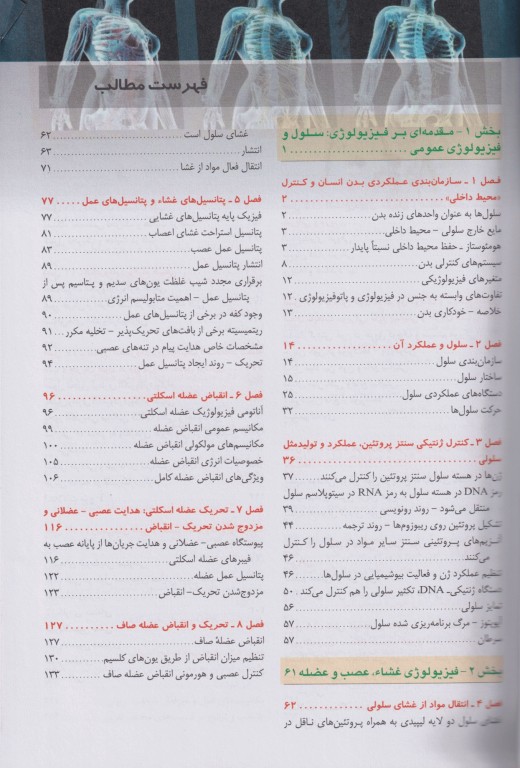 فهرست مطالب
بخش ۱ – مقدمه‌ای بر فیزیولوژی: سلول و
فیزیولوژی عمومی .................. ۱
فصل ۱ – سازمان‌بندی عملکردی بدن انسان و کنترل
«محیط داخلی» .................. ۲
سلول‌ها به عنوان واحدهای زنده بدن .................. ۲
مایع خارج سلولی – محیط داخلی .................. ۳
هومئوستاز – حفظ محیط داخلی نسبتاً پایدار .................. ۳
سیستم‌های کنترلی بدن .................. ۸
متغیرهای فیزیولوژیکی .................. ۱۲
تفاوت‌های وابسته به جنس در فیزیولوژی و پاتوفیزیولوژی ۱۲
خلاصه – خودکاری بدن .................. ۱۳
فصل ۲ – سلول و عملکرد آن .................. ۱۴
سازمان‌بندی سلول .................. ۱۴
ساختار سلول .................. ۱۵
دستگاه‌های عملکردی سلول .................. ۲۵
حرکت سلول‌ها .................. ۳۲
فصل ۳ – کنترل ژنتیکی سنتز پروتئین، عملکرد و تولیدمثل
سلولی .................. ۳۶
ژن‌ها در هسته سلول سنتز پروتئین را کنترل می‌کنند ..... ۳۷
رمز DNA در هسته سلول به رمز RNA در سیتوپلاسم سلول
منتقل می‌شود – روند رونویسی .................. ۳۹
تشکیل پروتئین روی ریبوزوم‌ها – روند ترجمه ........ ۴۴
آنزیم‌های پروتئینی سنتز سایر مواد در سلول را کنترل
می‌کنند .................. ۴۶
تنظیم عملکرد ژن و فعالیت بیوشیمیایی در سلول‌ها ..... ۴۶
دستگاه ژنتیکی‌ـ DNA، تکثیر سلولی را هم کنترل می‌کند . ۵۰
تمایز سلولی .................. ۵۶
آپوپتوز – مرگ برنامه‌ریزی شده سلول .................. ۵۷
سرطان .................. ۵۷
بخش ۲ – فیزیولوژی غشاء، عصب و عضله ۶۱
فصل ۴ – انتقال مواد از غشای سلولی .................. ۶۲
غشای سلول دو لایه لیپیدی به همراه پروتئین‌های ناقل در
غشای سلول است .................. ۶۲
انتشار .................. ۶۳
انتقال فعال مواد از غشا .................. ۷۱
فصل ۵ – پتانسیل‌های غشاء و پتانسیل‌های عمل ..... ۷۷
فیزیک پایه پتانسیل‌های غشایی .................. ۷۷
پتانسیل استراحت غشای اعصاب .................. ۸۱
پتانسیل عمل عصب .................. ۸۳
انتشار پتانسیل عمل .................. ۸۹
برقراری مجدد شیب غلظت یون‌های سدیم و پتاسیم پس از
پتانسیل عمل – اهمیت متابولیسم انرژی .................. ۸۹
وجود کفه در برخی از پتانسیل‌های عمل .................. ۹۰
ریتمیسیته برخی از بافت‌های تحریک‌پذیر – تخلیه مکرر .. ۹۱
مشخصات خاص هدایت پیام در تنه‌های عصبی .......... ۹۲
تحریک – روند ایجاد پتانسیل عمل .................. ۹۴
فصل ۶ – انقباض عضله اسکلتی .................. ۹۶
آناتومی فیزیولوژیک عضله اسکلتی .................. ۹۶
مکانیسم عمومی انقباض عضله .................. ۹۹
مکانیسم‌های مولکولی انقباض عضله .................. ۱۰۰
خصوصیات انرژی انقباض عضله .................. ۱۰۵
ویژگی‌های انقباض عضله کامل .................. ۱۰۶
فصل ۷ – تحریک عضله اسکلتی: هدایت عصبی – عضلانی و
مزدوج شدن تحریک – انقباض .................. ۱۱۶
پیوستگاه عصبی– عضلانی و هدایت جریان‌ها از پایانه عصب به
فیبرهای عضله اسکلتی .................. ۱۱۶
پتانسیل عمل عضله .................. ۱۲۲
مزدوج‌شدن تحریک– انقباض .................. ۱۲۳
فصل ۸ – تحریک و انقباض عضله صاف .................. ۱۲۷
انقباض عضلهٔ صاف .................. ۱۲۷
تنظیم میزان انقباض از طریق یون‌های کلسیم .......... ۱۳۰
کنترل عصبی و هورمونی انقباض عضله صاف .......... ۱۳۳